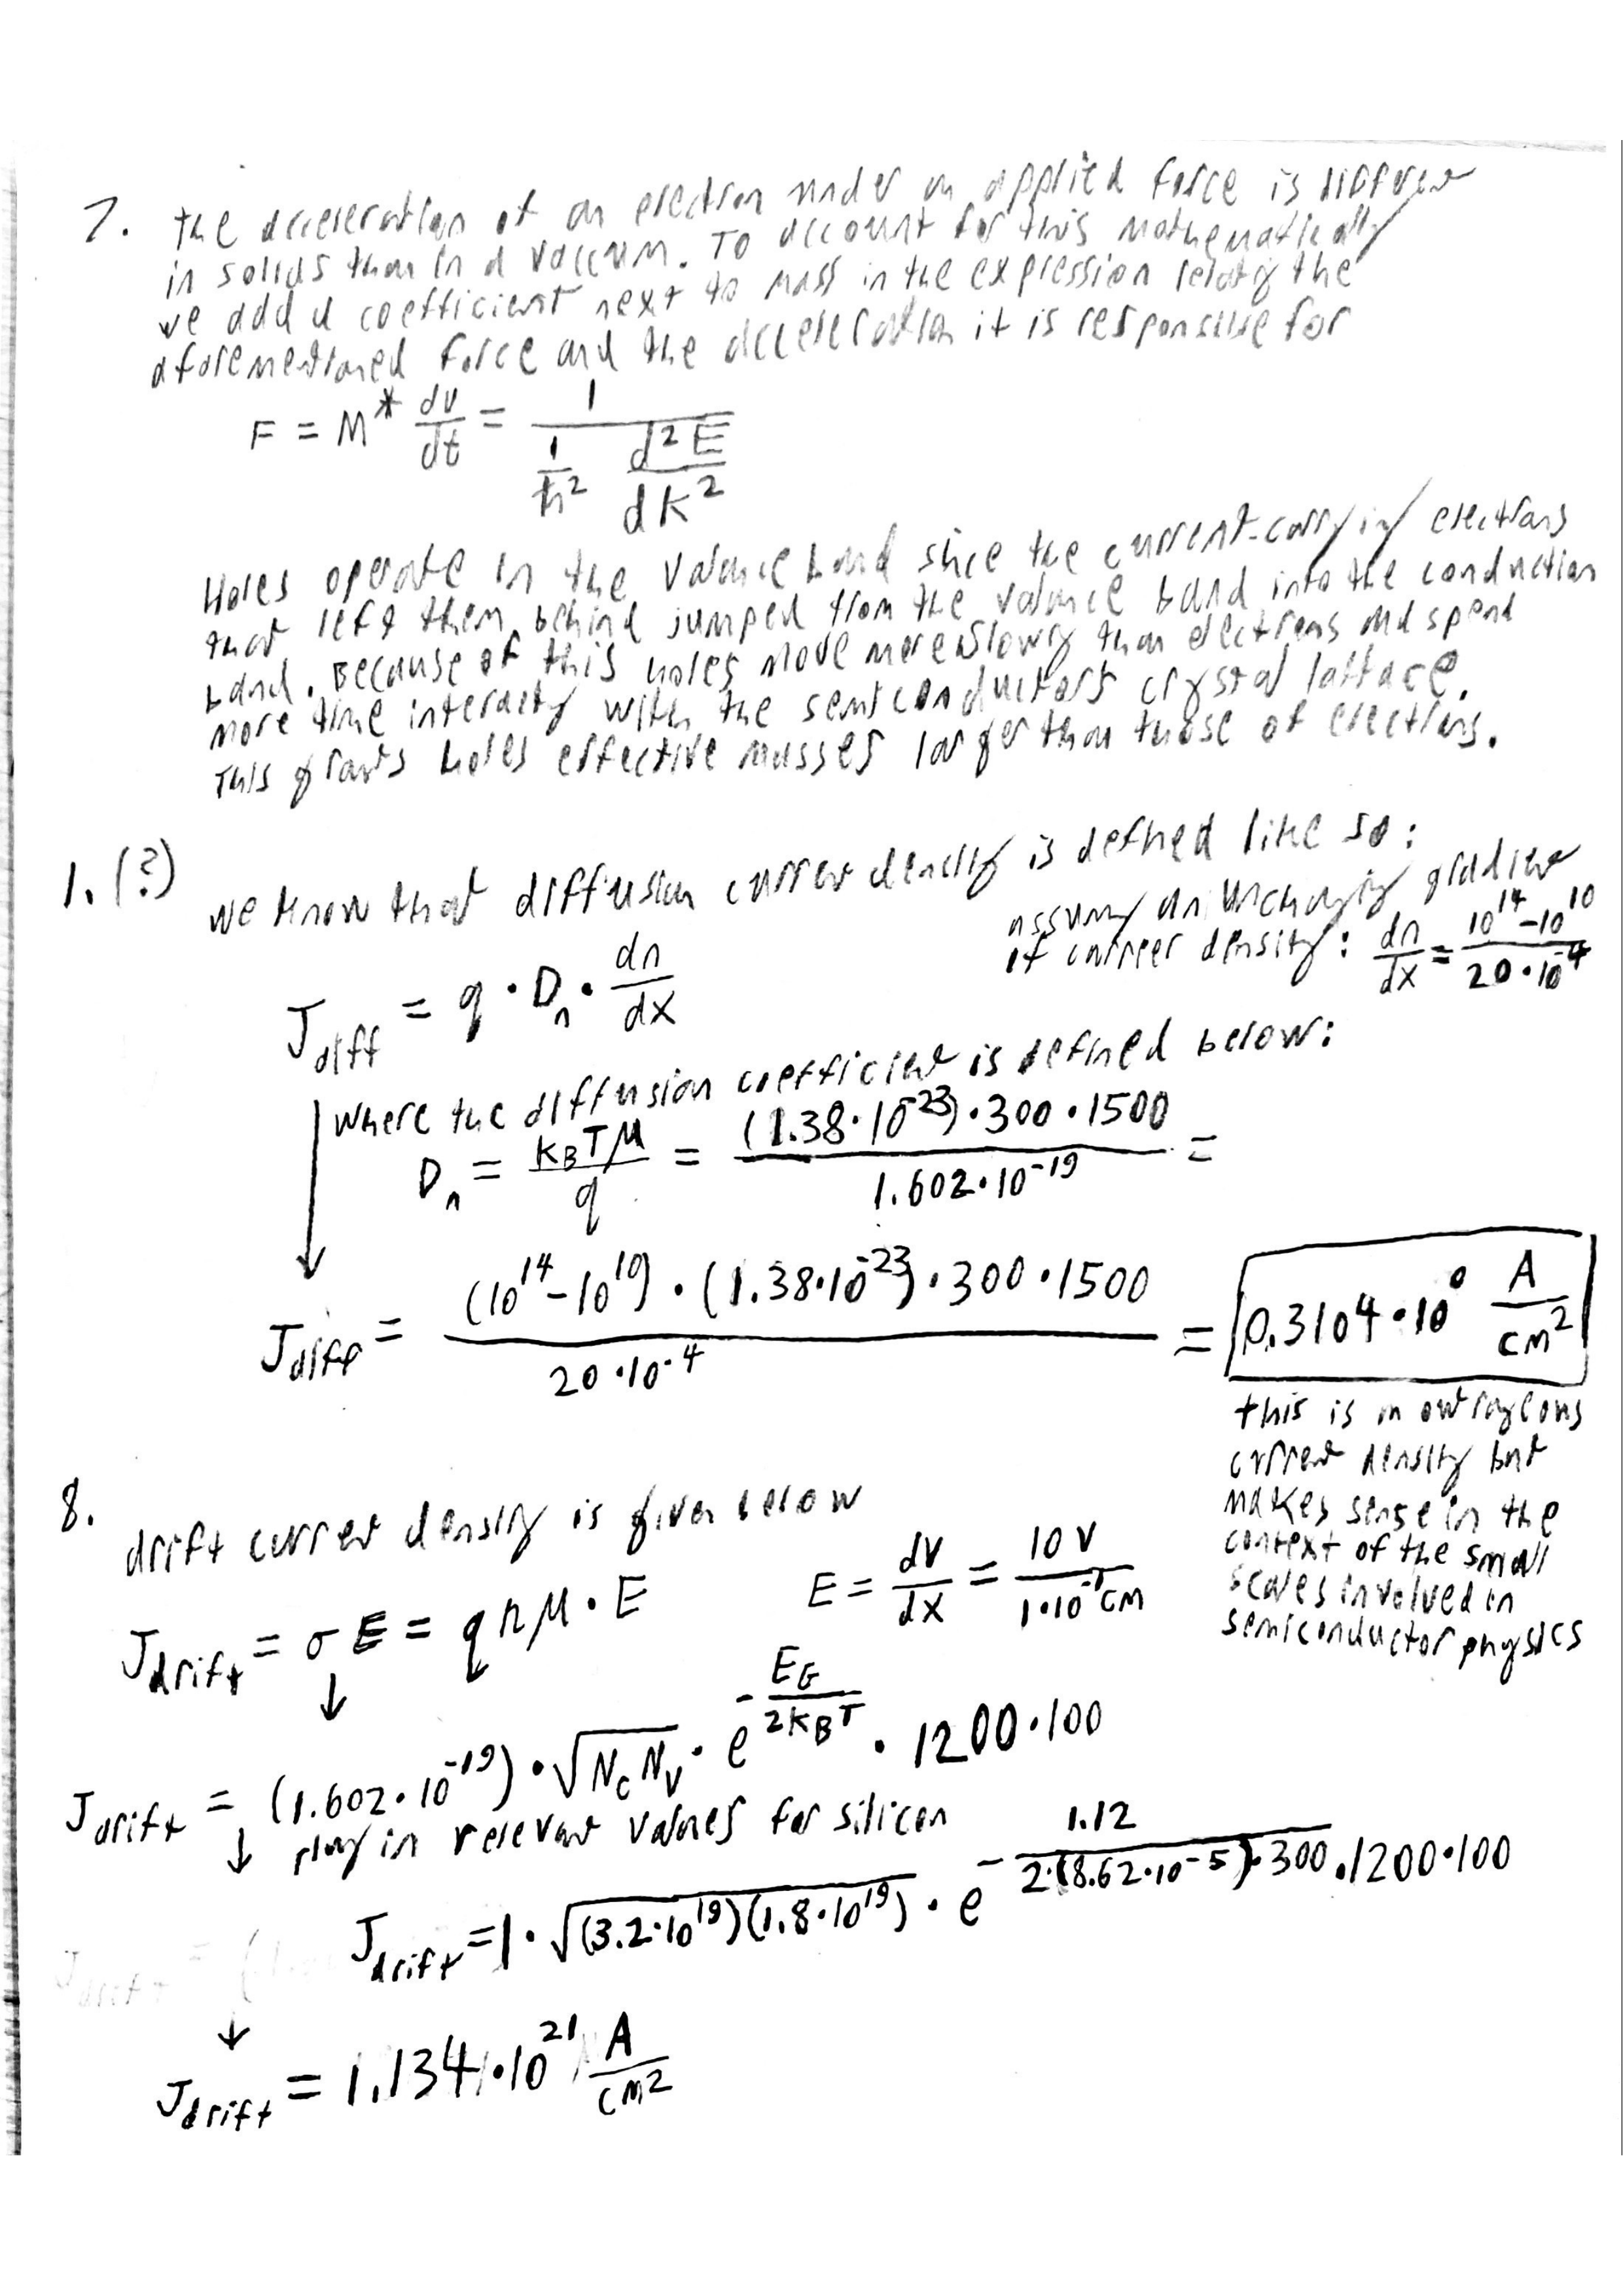 7. The acceleration of an electron under an applied force is different
in solids than in a vaccum. To account for this mathematically
we add a coefficient next to mass in the expression relating the
aforementioned force and the acceleration it is responsible for
F = M* dv/dt = 1 / (1/ħ² d²E/dk²)
Holes operate in the valance band since the current-carrying electrons
that left them behind jumped from the valance band into the conduction
band. Because of this holes move more slowly than electrons and spend
more time interacting with the semiconductors crystal lattace.
This grants holes effective masses larger than those of electrons.
1. (?) we know that diffusion current density is defined like so:
J_diff = q · D_n · dn/dx
assuming an unchanging gradient
of carrier density: dn/dx = (10^14 - 10^10) / (20·10^-4)
where the diffusion coefficient is defined below:
D_n = k_B T μ / q = (1.38·10^-23)·300·1500 / 1.602·10^-19 =
J_diff = (10^14 - 10^10)·(1.38·10^-23)·300·1500 / 20·10^-4 = 0.3104·10^0 A/cm²
this is an outrageous
current density but
makes sense in the
context of the small
scales involved in
semiconductor physics
8. drift current density is given below
J_drift = σE = qnμ·E
E = dV/dx = 10 V / 1·10^-1 cm
↓
J_drift = (1.602·10^-19)·√(N_c N_v)·e^(-E_G / 2k_B T)·1200·100
↓ plug in relevant values for silicon
J_drift = 1·√((3.2·10^19)(1.8·10^19))·e^(-1.12 / 2·(8.62·10^-5)·300)·1200·100
↓
J_drift = 1.134·10^21 A/cm²